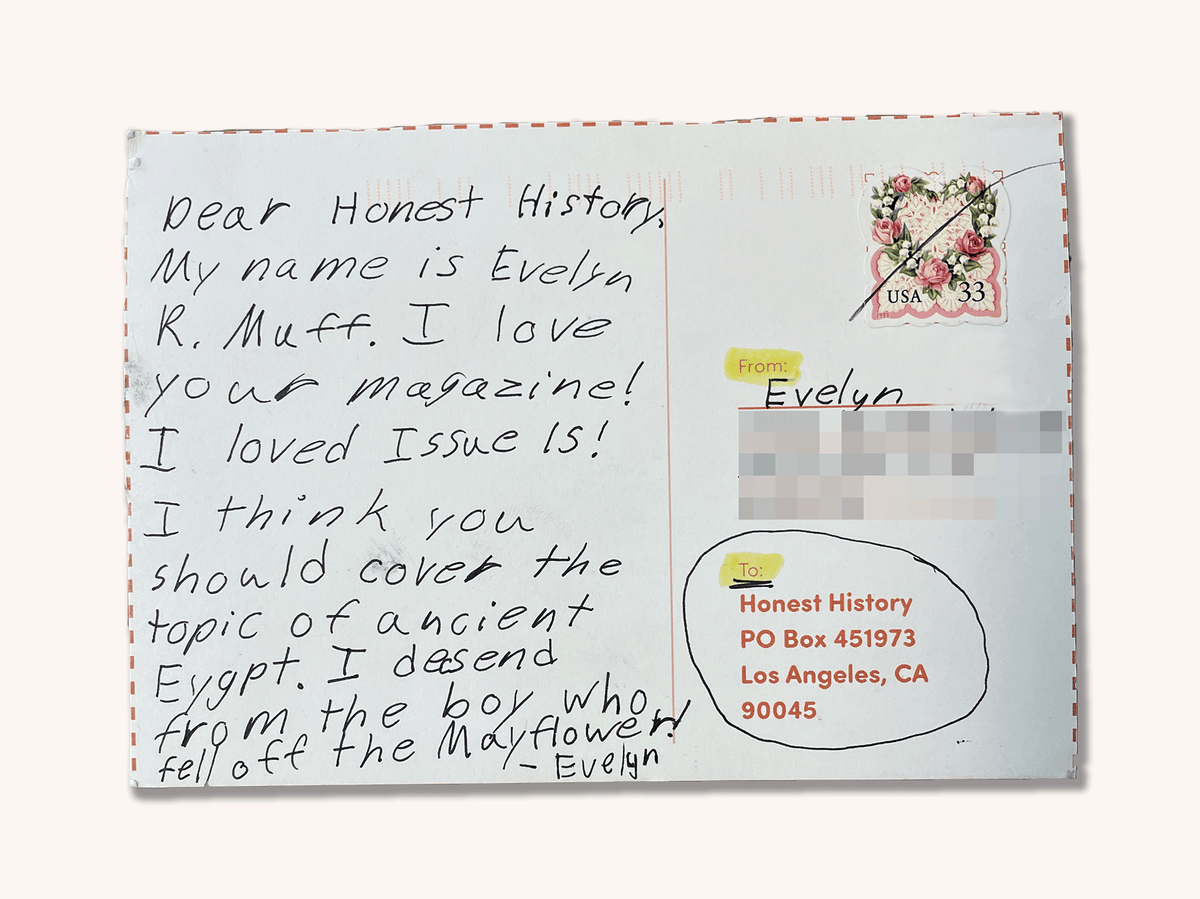 Dear Honest History,
My name is Evelyn
R. Muff. I love
your magazine!
I loved Issue 15!
I think you
should cover the
topic of ancient
Eygpt. I desend
from the boy who
fell off the Mayflower!
- Evelyn
USA 33
From:
Evelyn
To:
Honest History
PO Box 451973
Los Angeles, CA
90045